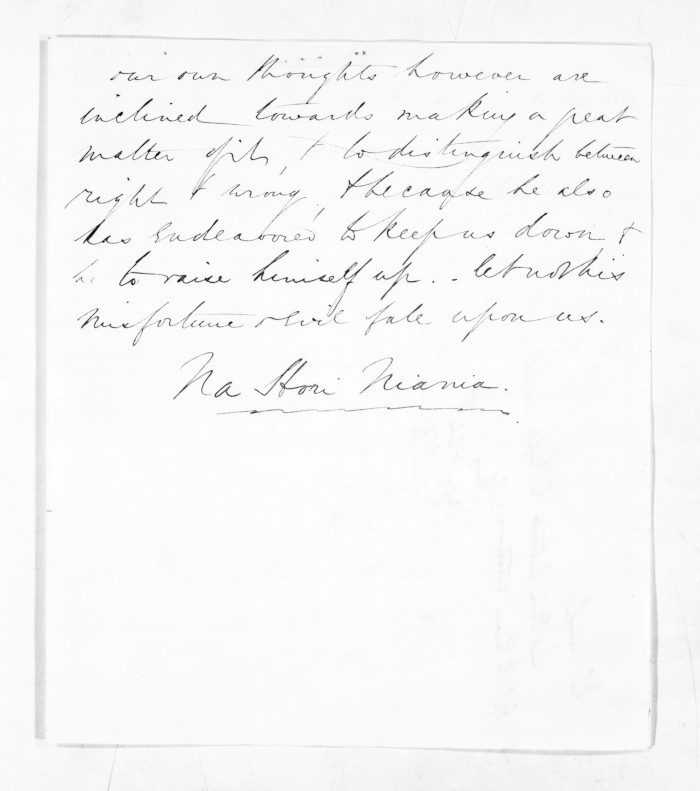 our own thoughts however are
inclined towards making a great
matter of it, & to distinguish between
right & wrong, & because he also
has endeavored to keep us down, &
to raise himself up. - let not his
misfortune & evil fale upon us.
Na Hori Niania.